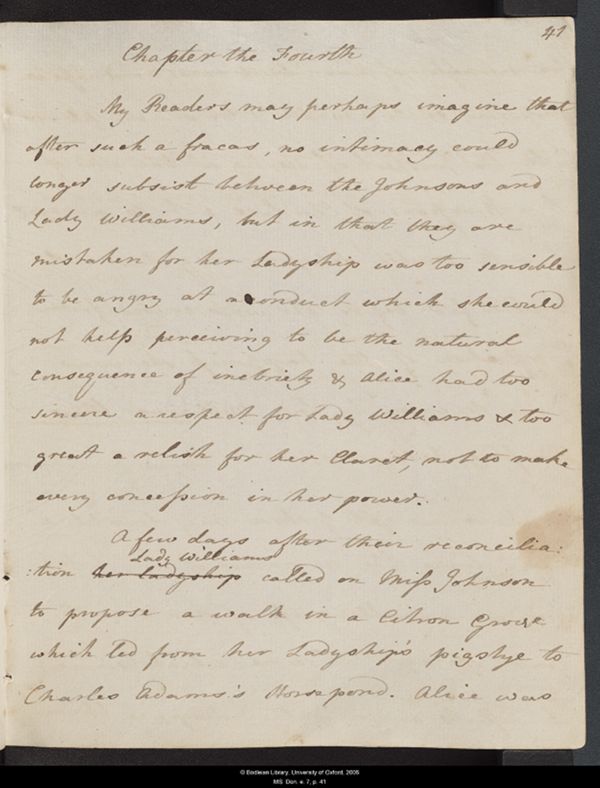 41
Chapter the Fourth
My Readers may perhaps imagine that
after such a fracas, no intimacy could
longer subsist between the Johnsons and
Lady Williams, but in that they are
mistaken for her Ladyship was too sensible
to be angry at a conduct which she could
not help perceiving to be the natural
consequence of inebriety & Alice had too
sincere a respect for Lady Williams & too
great a relish for her Claret, not to make
every concession in her power.
A few days after their reconcilia:
Lady Williams
:tion her ladyship called on Miss Johnson
to propose a walk in a Citron Grove
which led from her Ladyship's pigstye to
Charles Adams's Horsepond. Alice was
© Bodleian Library, University of Oxford, 2005
MS. Don. e. 7, p. 41